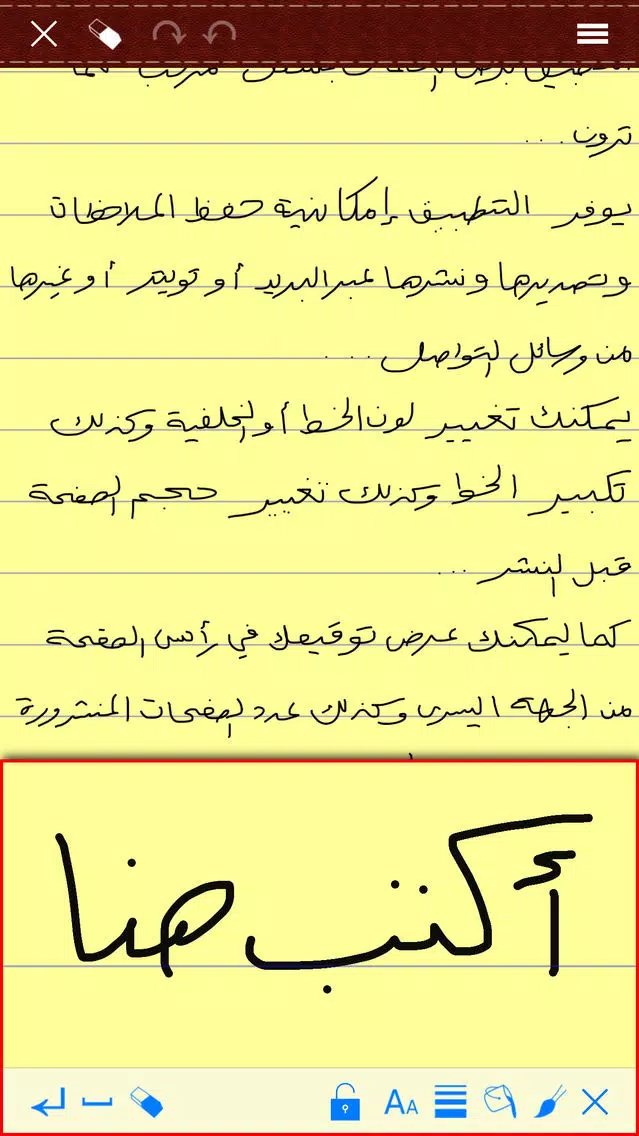 ترون ...
يوفر التطبيق إمكانية حفظ الملاحظات
وتصديرها ونشرها عبر البريد أو تويتر أو غيرها
من وسائل التواصل ....
يمكنك تغيير لون الخط أو الخلفية وكذلك
تكبير الخط وكذلك تغيير حجم الصفحة
قبل النشر ...
كما يمكنك عرض توقيعك في رأس الصفحة
من الجهة اليسرى وكذلك عدد الصفحات المنشرورة
أكتب هنا
AA